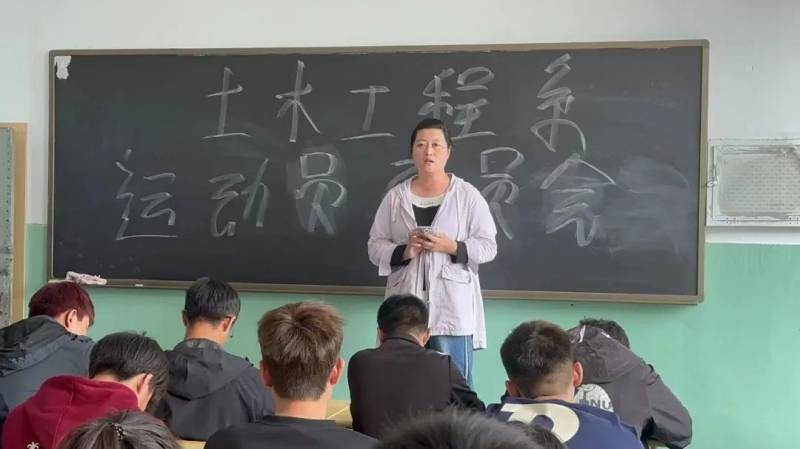 土木工程系
运动员 员会
NU